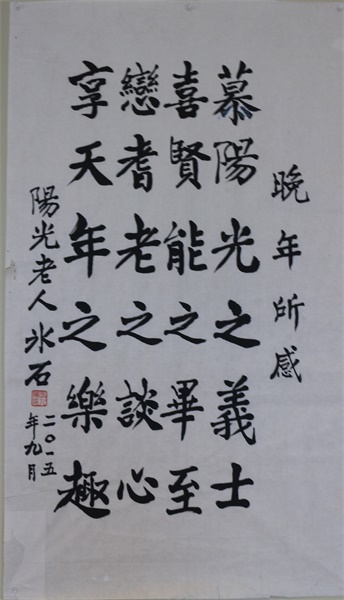 晚年所感
慕陽光之義士
喜賢能之畢至
戀耆老之談心
享天年之樂趣
陽光老人冰石
二〇一五
年九月